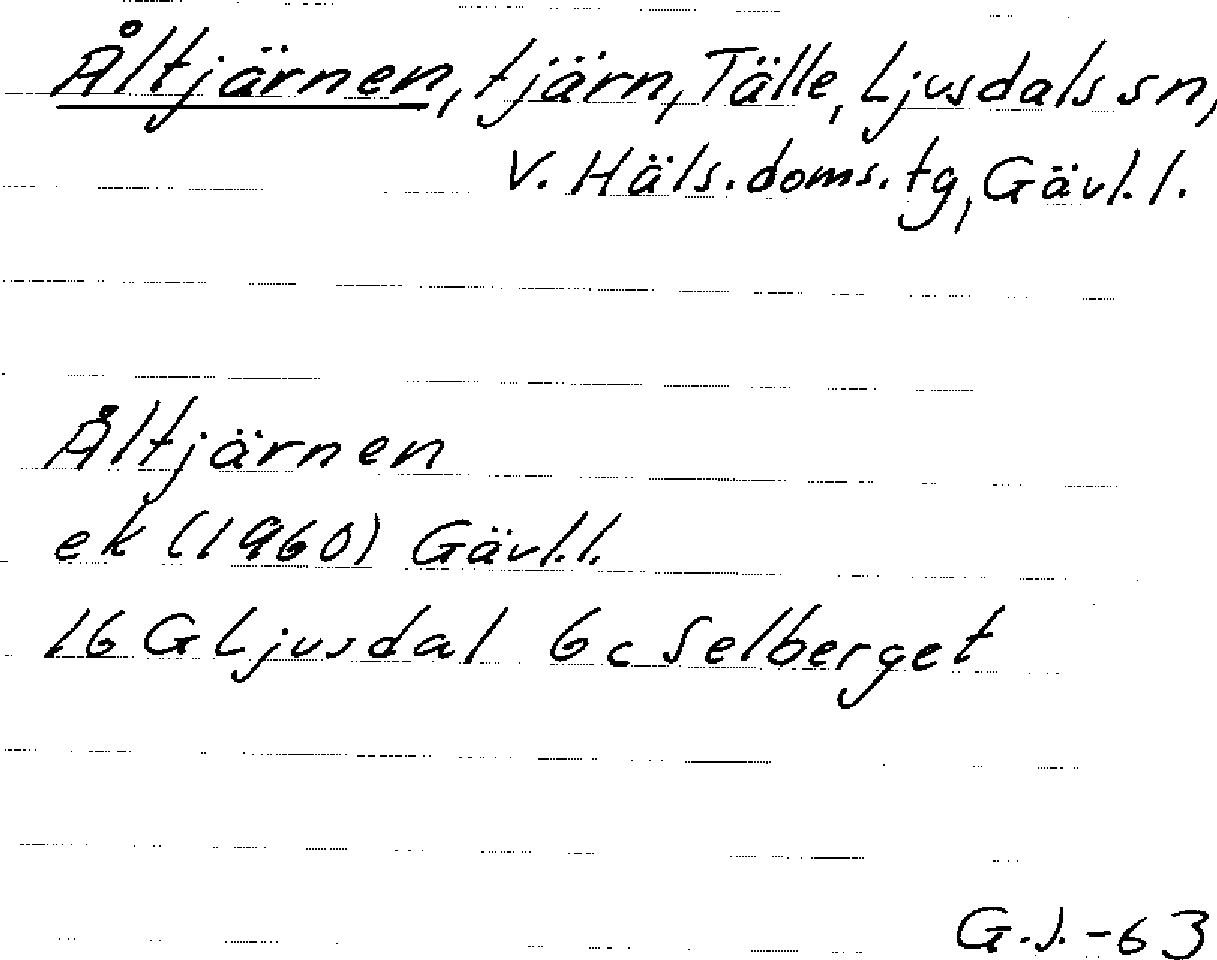 Åltjärnen, tjärn, Tälle, Ljusdals sn,
V. Häls. doms. tg, Gävl. l.
Åltjärnen
ek (1960) Gävl. l.
16 G Ljusdal 6 c Selberget
G.J. -63